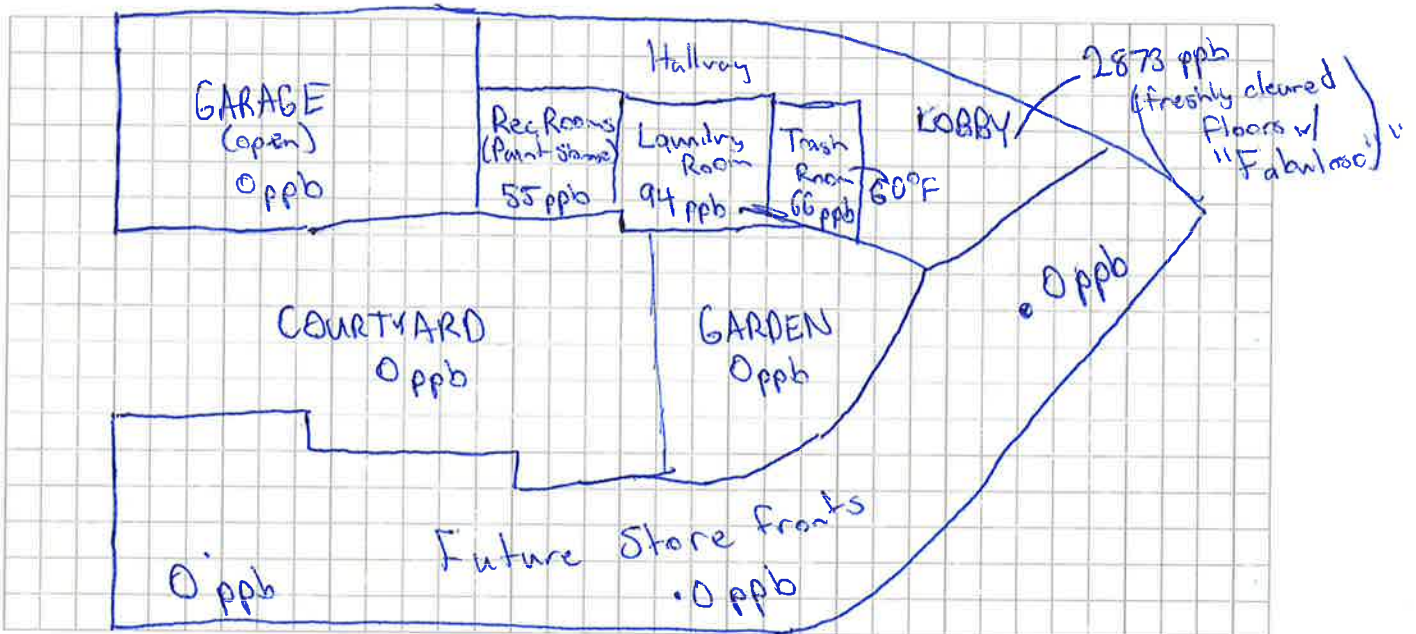 Hallway
GARAGE
(open)
0 ppb
Rec Rooms
(Paint
55 ppb
Laundry
Room
94 ppb
Trash
Room
66 ppb
60°F
LOBBY
2873 ppb
(freshly cleaned
floors w/
"Fabuloso")
0 ppb
COURTYARD
0 ppb
GARDEN
0 ppb
Future Store Fronts
0 ppb
0 ppb